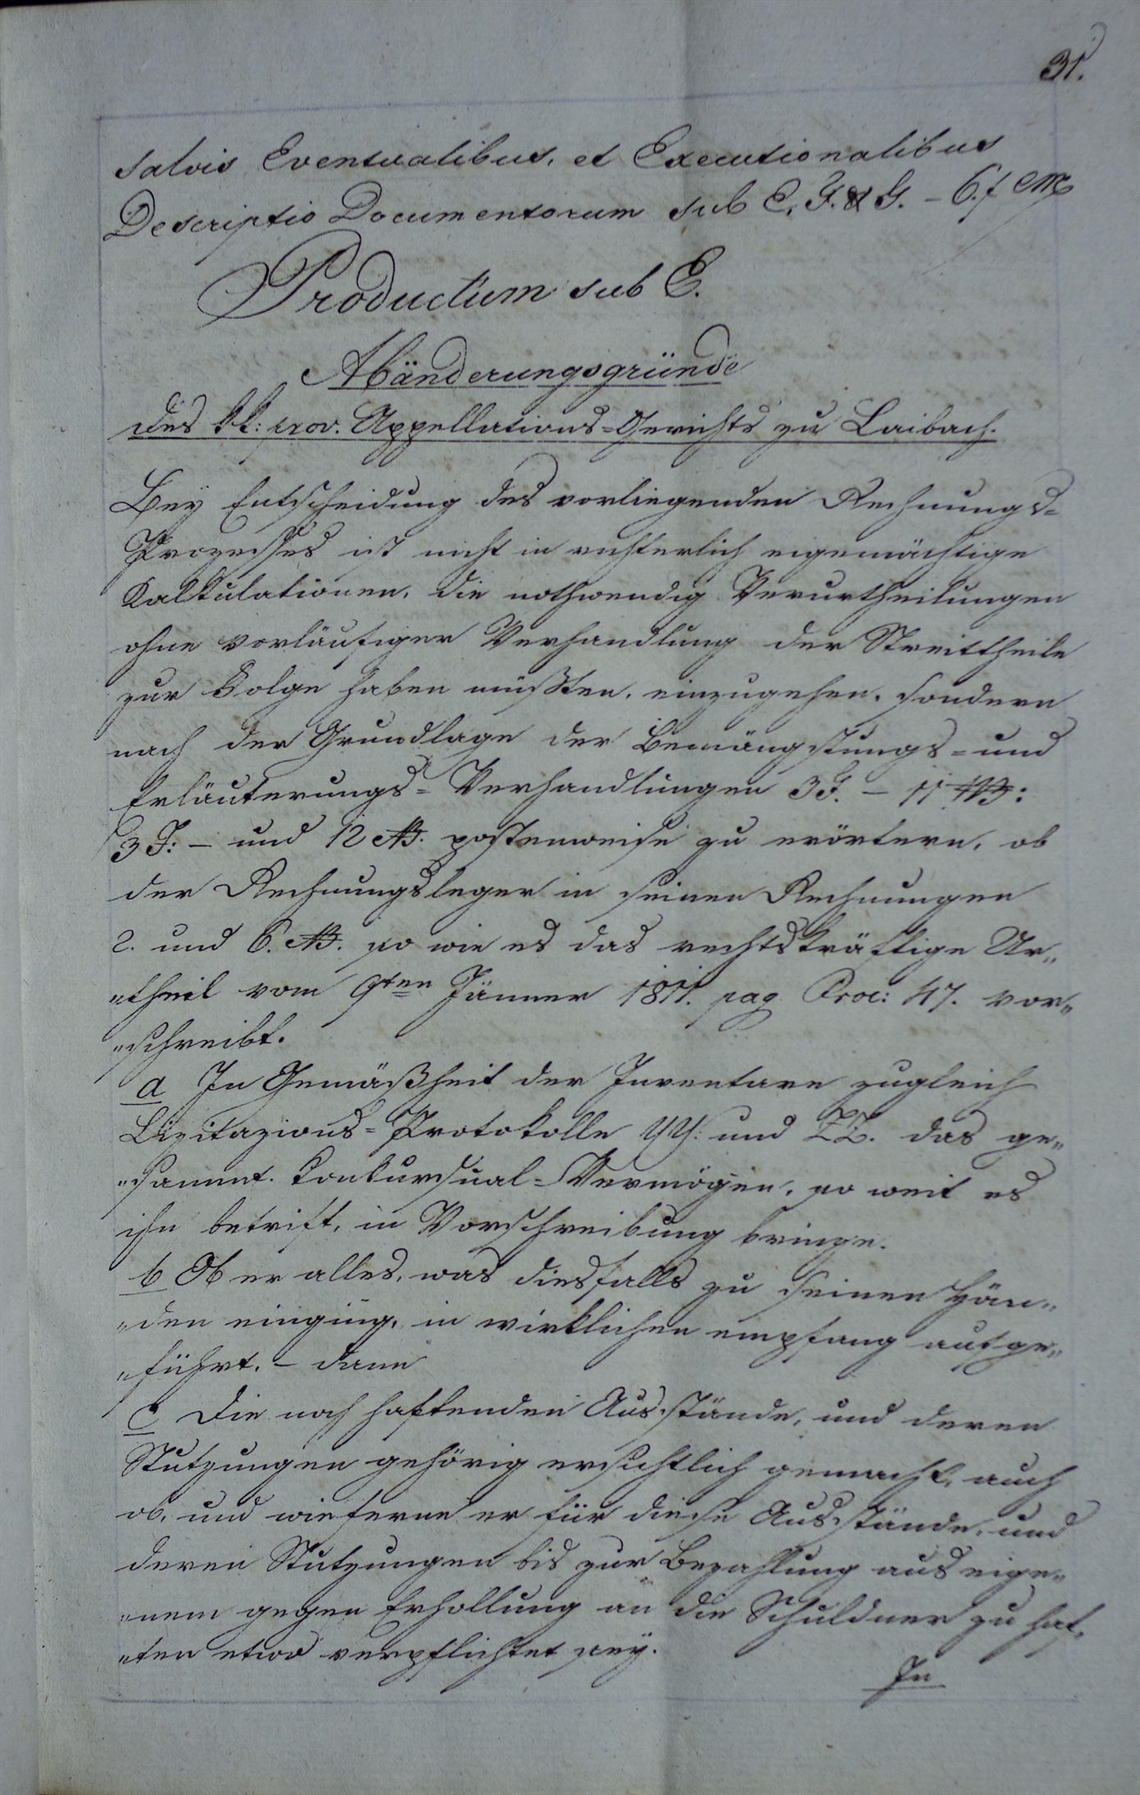 31.
salvis Eventualibus, et Executionalibus
Descriptio Documentorum sub E, F. & G. – 6.f CM
Productum sub E.
Abänderungsgründe
des kk: prov. Appellations-Gerichts zu Laibach.
Bey Entscheidung des vorliegenden Rechnungs-
Prozesses ist nicht in richterlich eigemächtige
Kalkulationen, die nothwendig Verurtheilungen
ohne vorläufiger Verhandlung der Streittheile
zur Folge haben müßten, einzugehen, sondern
nach der Grundlage der Bemänglungs- und
Erläuterungs-Verhandlungen 3 F. – 11
3 F: – und 12 postenweise zu erörtern, ob
der Rechnungsleger in seinen Rechnungen
2. und 6. so wie es das rechtskräftige Ur„
„theil vom 9ten Jänner 1811. pag Proc: 47. vor„
„schreibt.
a In Gemäßheit der Inventare zugleich
Lizitazions-Protokolle YY: und ZZ. das ge„
„sammt. Konkursual-Vermögen, so weit es
ihn betrift, in Vorschreibung bringe.
b Ob er alles, was diesfalls zu seinen Hän„
„den einging, in wirklichen empfang aufge„
„führt. – dann
c Die noch haftenden Ausstände, und deren
Stutzungen gehörig ersichtlich gemacht, auch
ob, und wieferne er für diese Ausstände, und
deren Stutzungen bis zur Bezahlung aus eige„
„nem gegen Erhollung an die Schuldner zu haf„
„ten etwa verpflichtet sey.
In